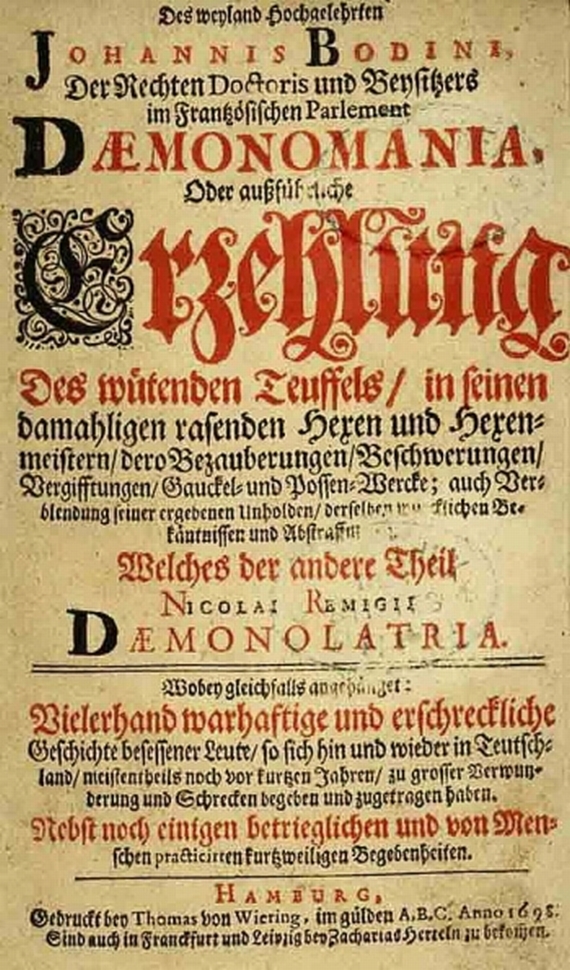 Des weyland Hochgelehrten
JOHANNIS BODINI,
Der Rechten Doctoris und Beysitzers
im Frantzösischen Parlement
DÆMONOMANIA,
Oder außführliche
Erzehlung
Des wütenden Teuffels/ in seinen
damahligen rasenden Hexen und Hexen-
meistern/ dero Bezauberungen/ Beschwerungen/
Vergifftungen/ Gauckel- und Possen-Wercke; auch Ver-
blendung seiner ergebenen Unholden/ derselben Be-
käntnissen und
Welches der andere Theil
NICOLAI REMIGII
DÆMONOLATRIA.
Wobey gleichfalls angehänget:
Vielerhand warhaftige und erschreckliche
Geschichte besessener Leute/ so sich hin und wieder in Teutsch-
land/ meistentheils noch vor kurtzen Jahren/ zu grosser Verwun-
derung und Schrecken begeben und zugetragen haben.
Nebst noch einigen betrieglichen und von Men-
schen practicirten kurtzweiligen Begebenheiten.
HAMBURG,
Gedruckt bey Thomas von Wiering, im gülden A.B.C. Anno 1698.
Sind auch in Franckfurt und Leipzig bey Zacharias Herteln zu bekommen.